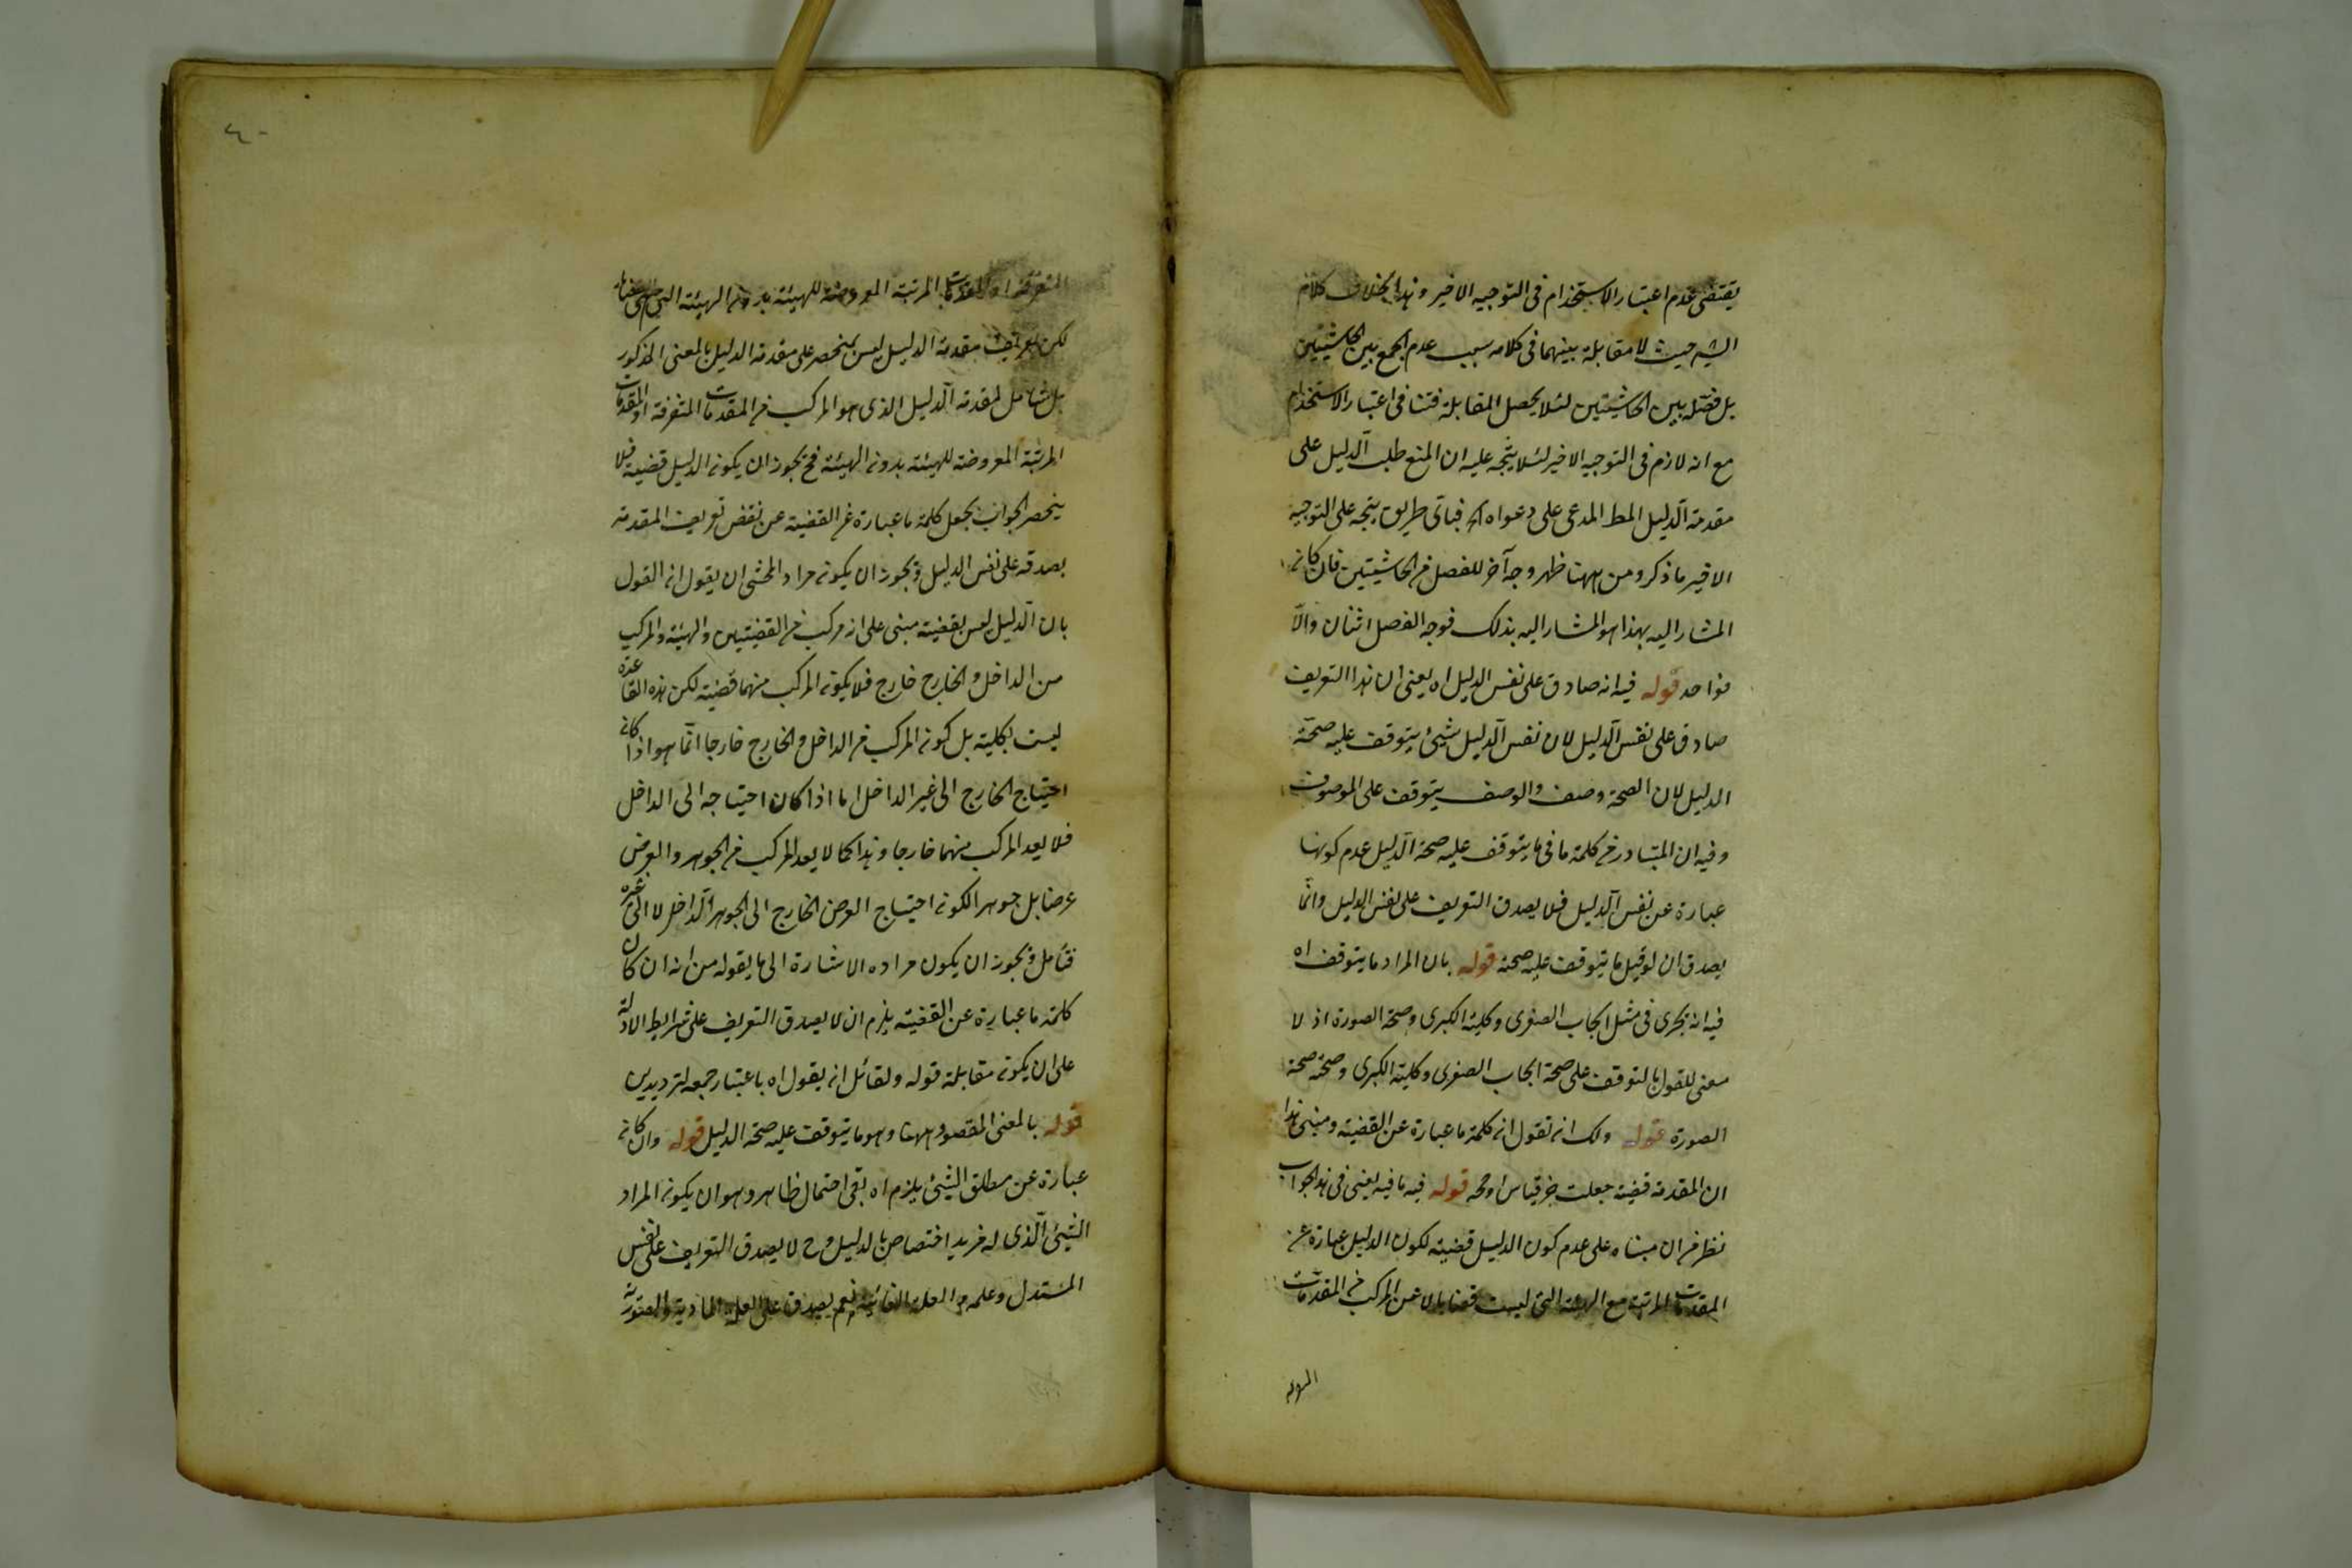 يقتضى عدم اعتبار الاستخدام فى التوجيه الاخير وهذا بخلاف كلام
الشه حيث لا مقابلة بينهما فى كلامه سبب عدم الجمع بين الحاشيتين
بل فصله بين الحاشيتين لئلا يحصل المقابلة فتنافى اعتبار الاستخدام
مع انه لازم فى التوجيه الاخير لئلا يتجه عليه ان المنع طلب الدليل على
مقدمة الدليل المط المدعى على دعواه اه فباى طريق يتجه على التوجيه
الاخير ما ذكر ومن ههنا ظهر وجه آخر للفصل من الحاشيتين فان كانه
المشار اليه بهذا هو المشار اليه بذلك فوجه الفصل اثنان والا
فواحد قوله فيه انه صادق على نفس الدليل اه يعنى ان هذا التعريف
صادق على نفس الدليل لان نفس الدليل شيئ يتوقف عليه صحة
الدليل لان الصحة وصف والوصف يتوقف على الموصوف
وفيه ان المتبادر من كلمة ما فى ما يتوقف عليه صحة الدليل عدم كونها
عبارة عن نفس الدليل فلا يصدق التعريف على نفس الدليل وانما
يصدق ان لو قيل ما يتوقف عليه صحته قوله بان المراد ما يتوقف اه
فيه انه يجرى فى مثل ايجاب الصغرى وكلية الكبرى وصحة الصورة اذ لا
معنى للقول بالتوقف على صحة ايجاب الصغرى وكلية الكبرى وصحة صحة
الصورة قوله ولك انه تقول انه كلمة ما عبارة عن القضية ومبنى هذا
ان المقدمة قضية جعلت جزء قياس او حجة قوله فيه ما فيه يعنى فى هذا الجواب
نظر من ان مبناه على عدم كون الدليل قضية لكون الدليل عبارة عن
المقدمات المرتبة مع الهيئة التى ليست قضايا لا عن المركب من المقدمات
المتفرقة او المقدمات المرتبة المعروضة للهيئة بدونه الهيئة التى هى
لكن تعريف مقدمة الدليل ليس بمنحصر على مقدمة الدليل بالمعنى المذكور
بل شامل لمقدمة الدليل الذى هو المركب من المقدمات المتفرقة او المقدمات
المرتبة المعروضة للهيئة بدونه الهيئة فح يجوز ان يكونه الدليل قضية فلا
ينحصر الجواب بجعل كلمة ما عبارة عن القضية عن نقض تعريف المقدمة
بصدقه على نفس الدليل ويجوز ان يكونه مراد المحشى ان يقول انه القول
بان الدليل ليس بقضية مبنى على انه مركب من القضيتين والهيئة والمركب
من الداخل والخارج خارج فلا يكونه المركب منهما قضية لكن هذه القاعدة
ليست بكلية بل كونه المركب من الداخل والخارج خارجا انما هو اذا كانه
احتياج الخارج الى غير الداخل اما اذا كان احتياجه الى الداخل
فلا يعد المركب منهما خارجا وهذا كما لا يعد المركب من الجوهر والعرض
عرضا بل جوهرا لكونه احتياج العرض الخارج الى الجوهر الداخل لا الى غيره
فتأمل ويجوز ان يكون مراده الاشارة الى ما يقوله من انه ان كان
كلمة ما عبارة عن القضية يلزم ان لا يصدق التعريف على شرايط الادلة
على ان يكونه مقابلة قوله ولقائل انه يقول اه باعتبار جمعه لترديدين
قوله بالمعنى المقصود ههنا وهو ما يتوقف عليه صحة الدليل قوله وان كانه
عبارة عن مطلق الشيئ يلزم اه بقى احتمال ظاهر وهو ان يكونه المراد
الشيئ الذى له مزيد اختصاص بالدليل وح لا يصدق التعريف على نفس
المستدل وعلمه من العلة الغائية نعم يصدق على العلة المادية والصورية